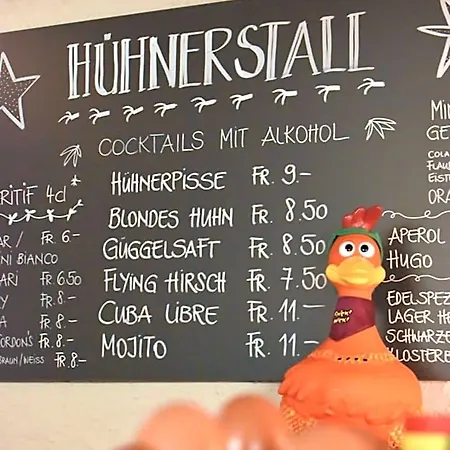 HÜHNERSTALL
COCKTAILS MIT ALKOHOL
HÜHNERPISSE FR. 9.-
BLONDES HUHN FR. 8.50
GÜGGELSAFT FR. 8.50
FLYING HIRSCH FR. 7.50
CUBA LIBRE FR. 11.-
MOJITO FR. 11.-
RITIF 4cl
AR / FR. 6.-
NI BIANCO
ARI FR. 6.50
Y FR. 8.-
A FR. 8.-
ORDON'S FR. 8.-
BRAUN/WEISS FR. 8.-
MIN
GE
COLA
FLAU
EIST
ORA
APEROL
HUGO
EDELSPEZ
LAGER HE
SCHWARZE
KLOSTERB